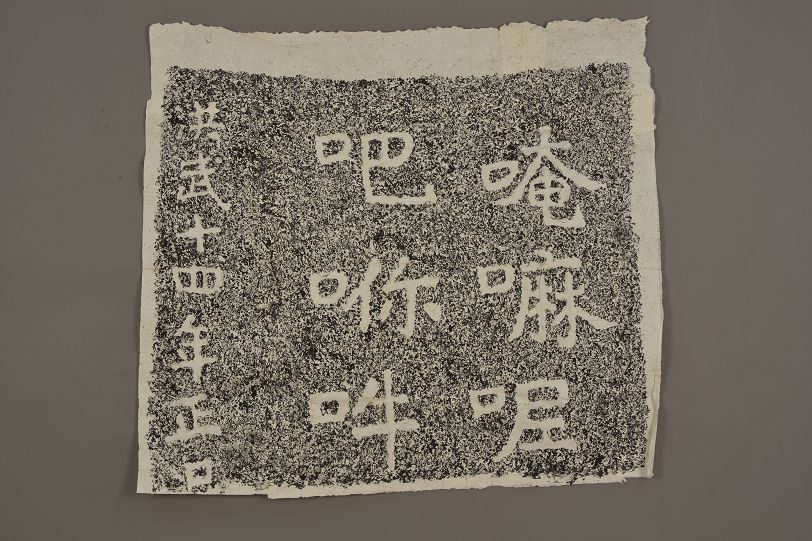 唵嘛呢
吧咻吽
洪武十四年正月